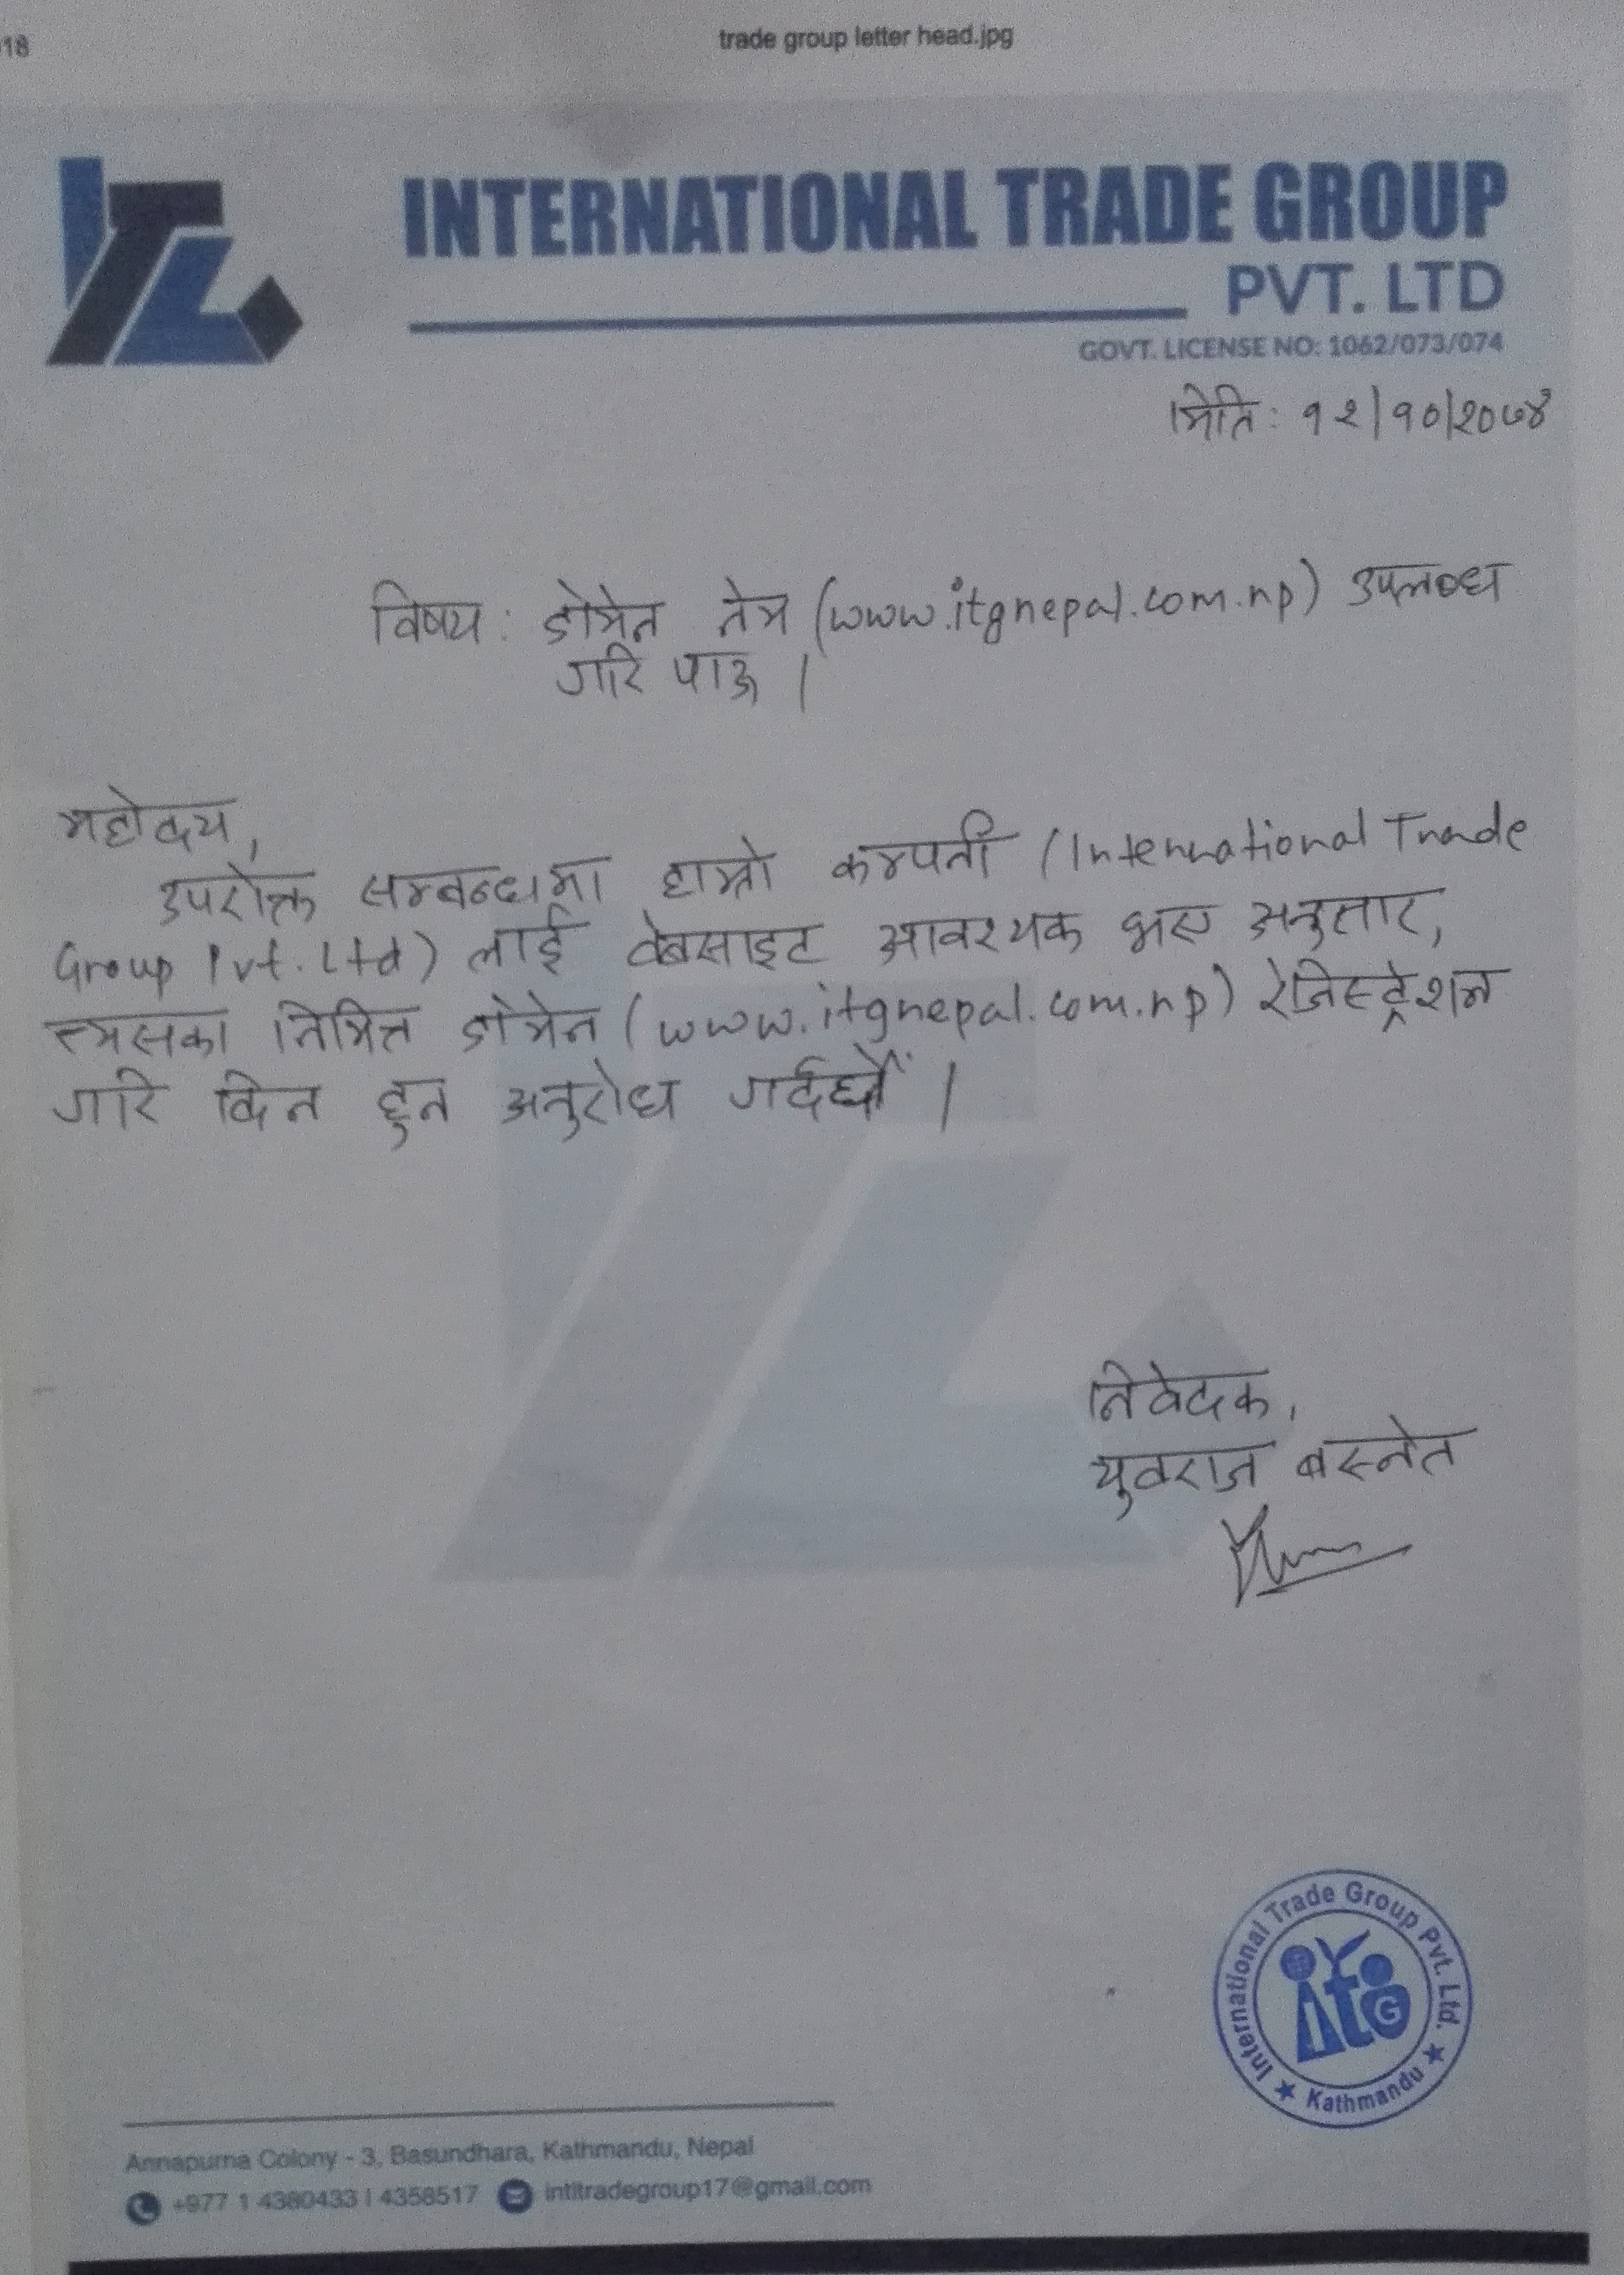 18
trade group letter head.jpg
INTERNATIONAL TRADE GROUP
PVT. LTD
GOVT. LICENSE NO: 1062/073/074
मिति: १२/१०/२०७४
विषय: डोमेन नेम (www.itgnepal.com.np) उपलब्ध
गरि पाऊ ।
महोदय,
उपरोक्त सम्बन्धमा हाम्रो कम्पनी (International Trade
Group Pvt. Ltd) लाई वेबसाइट आवश्यक भए अनुसार,
त्यसका निमित्त डोमेन (www.itgnepal.com.np) रेजिस्ट्रेशन
गरि दिन हुन अनुरोध गर्दछौं ।
निवेदक,
युवराज बस्नेत
International Trade Group Pvt. Ltd.
itG
★ Kathmandu ★
Annapurna Colony - 3, Basundhara, Kathmandu, Nepal
+977 1 4380433 | 4358517 intltradegroup17@gmail.com